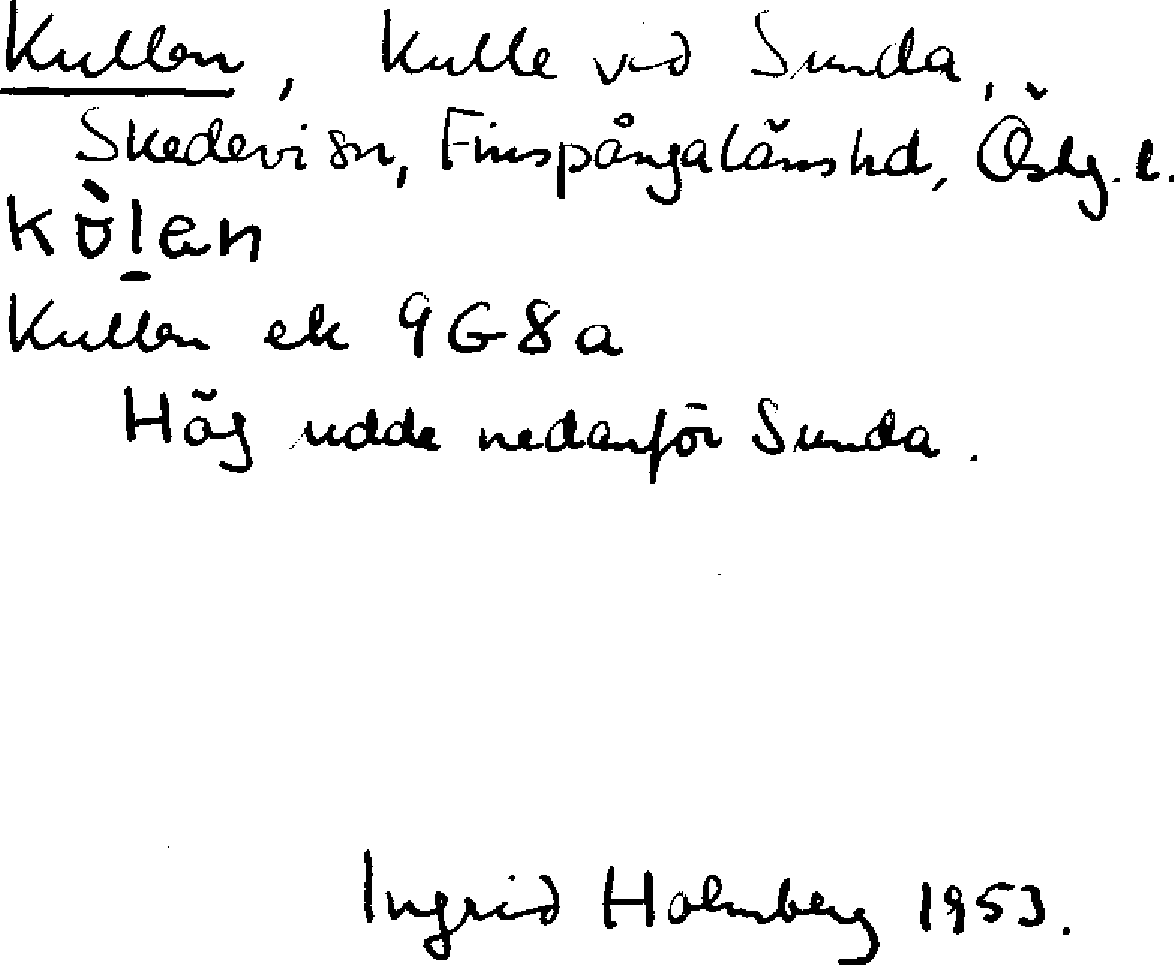 Kullen, kulle vid Sunda,
Skedevi sn, Finspångalänshd, Östg. l.
kòl̠en
Kullen ek 9G8a
Hög udde nedanför Sunda.
Ingrid Holmberg 1953.